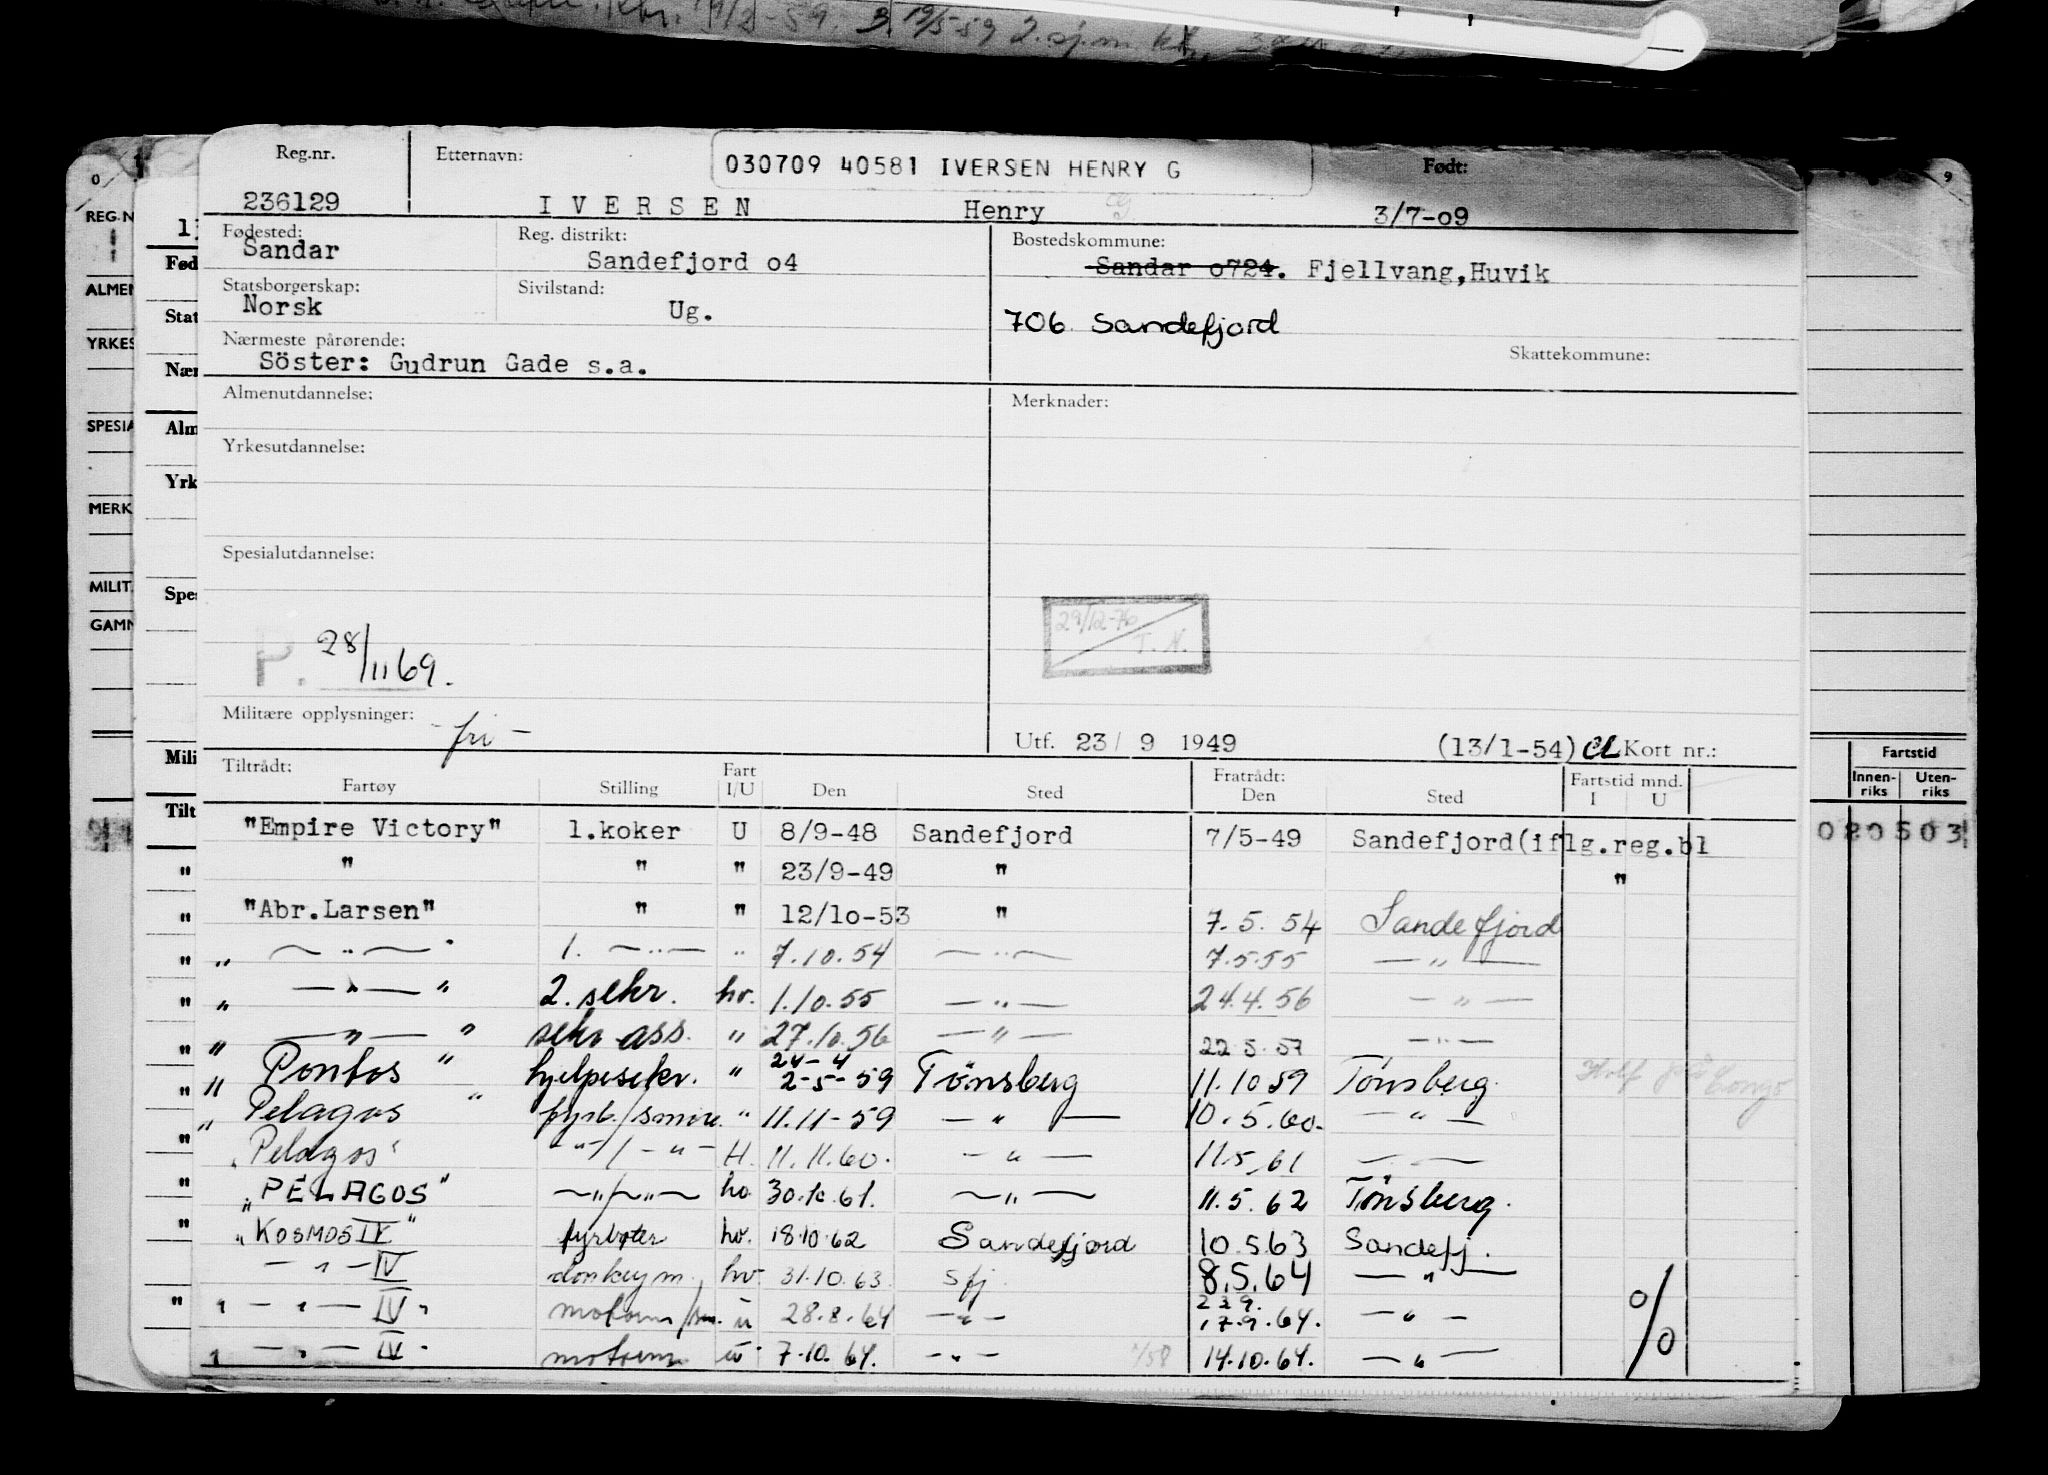 19/5-59 2.
Reg.nr. Etternavn: 030709 40581 IVERSEN HENRY G Født:
236129 I V E R S E N Henry G 3/7-o9
Fødested: Reg. distrikt: Bostedskommune:
Sandar Sandefjord o4 Sandar o724. Fjellvang,Huvik
Statsborgerskap: Sivilstand:
Norsk Ug. 706 Sandefjord
Nærmeste pårørende: Skattekommune:
Söster: Gudrun Gade s.a.
Almenutdannelse: Merknader:
Yrkesutdannelse:
Spesialutdannelse:
29/12-76
T. N.
P. 28/11 69.
Militære opplysninger: - fri -
Utf. 23/ 9 1949 (13/1-54) Kort nr.:
Tiltrådt: Fart Fratrådt: Fartstid mnd.
Fartøy Stilling I/U Den Sted Den Sted I U
"Empire Victory" 1.koker U 8/9-48 Sandefjord 7/5-49 Sandefjord(iflg.reg.bl
" " " 23/9-49 " "
"Abr.Larsen" " " 12/1o-53 " 7.5.54 Sandefjord
" — " — " 1. — " — " 7.10.54 — " — 7.5.55 — " —
" — " — " 2. sekr. hv. 1.10.55 — " — 24.4.56 — " —
" — " — " sekr ass. " 27.10.56 — " — 22.5.57 — " —
24-4
" Pontos " hjelpesekr. " 2-5-59 Tønsberg 11.10 59 Tønsberg.
" Pelagos " fyrb./smøre. " 11.11-59 — " — 10.5.60. — " —
"Pelagos" - " - / - " - H. 11.11.60. — " — 11.5.61 — " —
"PELAGOS" — " — / — " — hv. 30.10.61. — " — 11.5.62 Tønsberg.
"KOSMOS IV" fyrbøter hv. 18.10.62 Sandefjord 10.5.63 Sandefj.
— " — IV donkeym. hv. 31.10.63. Sfj. 8.5.64 — " —
" — " — IV " motorm/sm. u 28.8.64 — " — 17.9.64. — " — %
" — " — IV " motorm u 7.10.64. — " — 14.10.64. — " —
REG.N
ALMEN
YRKES
SPESIA
MERK
MILIT.
GAMN
Fød
Stat
Nær
Alm
Yrk
Spes
Mili
Tilt
Fartstid
Innenriks Utenriks
020503